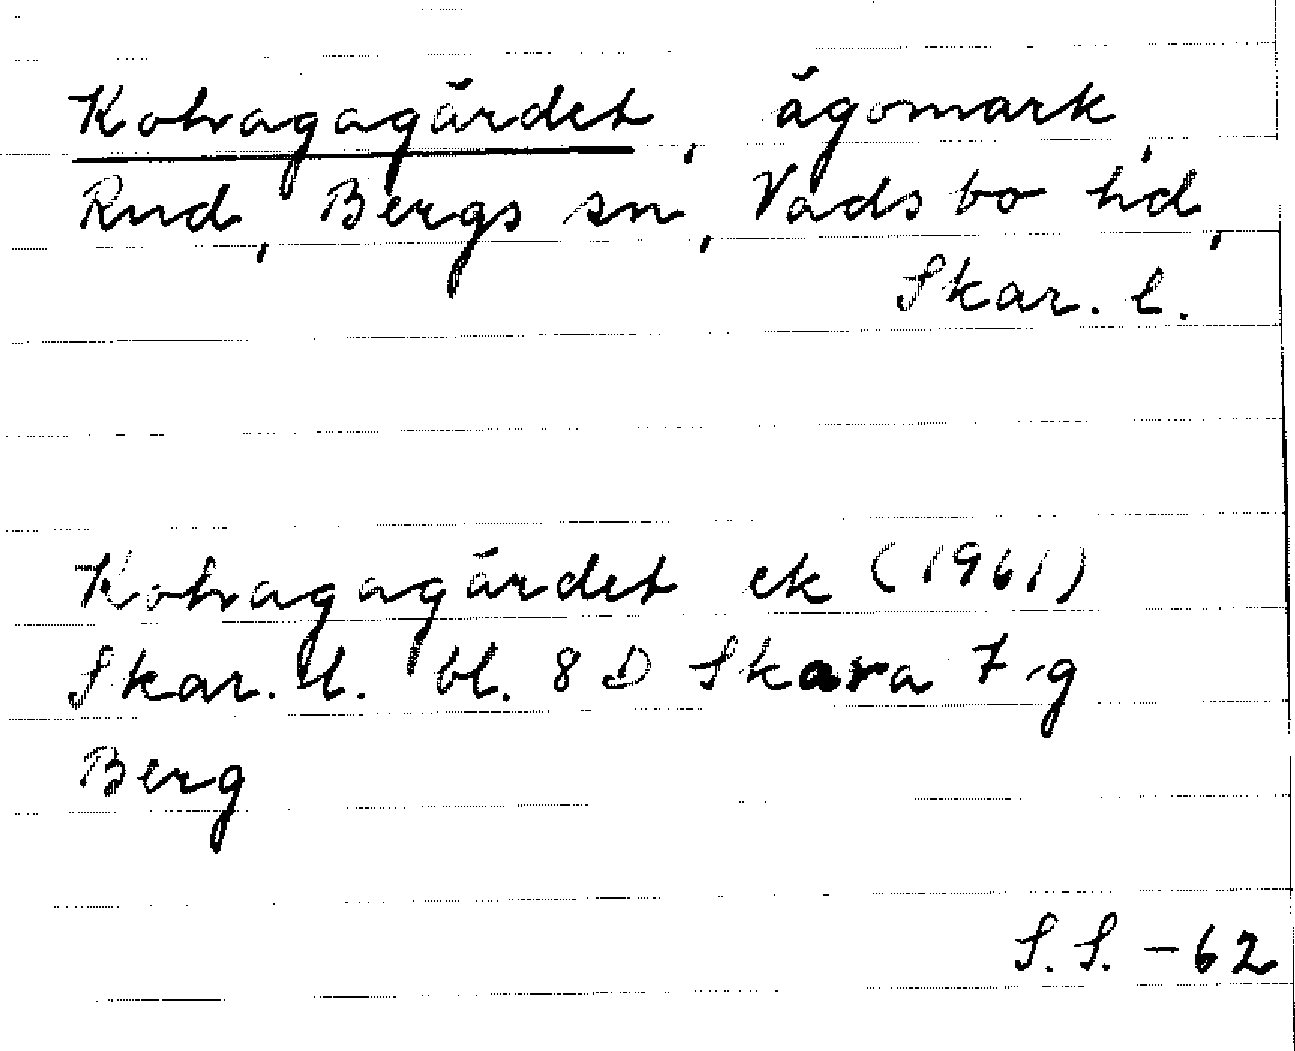 Kohagagärdet, ägomark,
Rud, Bergs sn, Vadsbo hd,
Skar. l.
Kohagagärdet ek (1961)
Skar. l. bl. 8 D Skara 7 g
Berg
S.S. -62